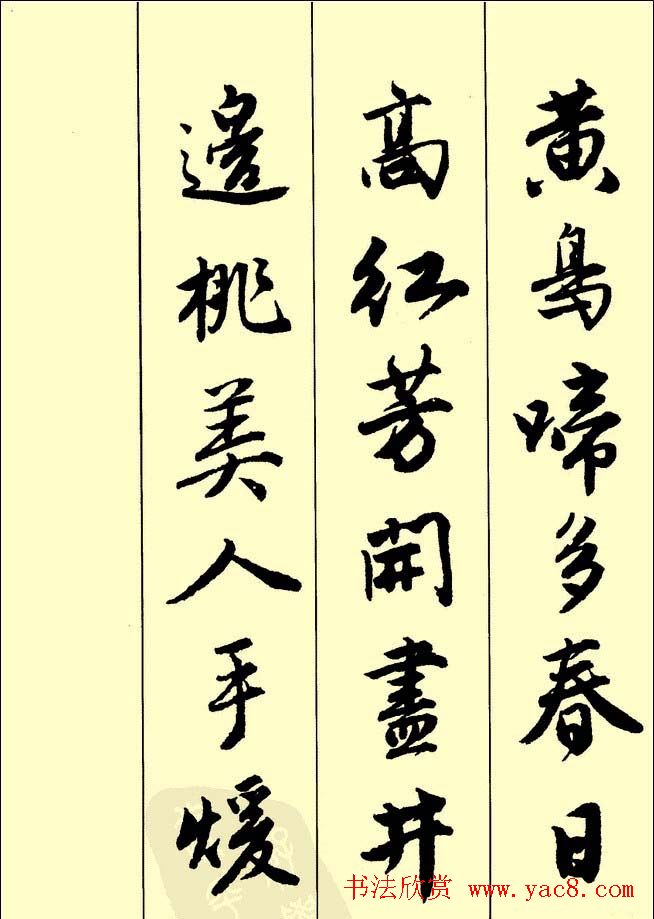 黄鳥啼多春日
高紅芳開盡井
邊桃美人手煖
书法欣赏 www.yac8.com